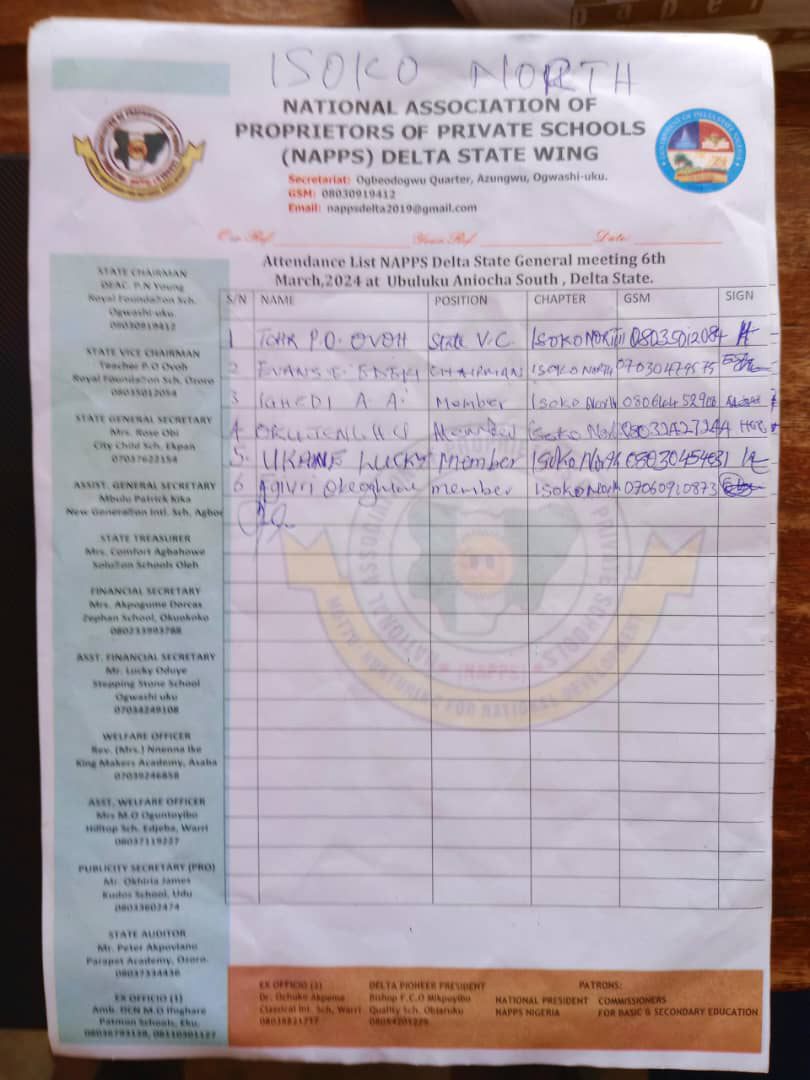 ISOKO NORTH
NATIONAL ASSOCIATION OF
PROPRIETORS OF PRIVATE SCHOOLS
(NAPPS) DELTA STATE WING
Secretariat: Ogbeodogwu Quarter, Azungwu, Ogwashi-uku.
GSM: 08030919412
Email: nappsdelta2019@gmail.com
Our Ref Your Ref Date
Attendance List NAPPS Delta State General meeting 6th
March,2024 at Ubuluku Aniocha South , Delta State.
S/N NAME POSITION CHAPTER GSM SIGN
1 P.O. OVOH State V.C. ISOKO NORTH
2 EVANS E. CHAIRMAN ISOKO NORTH 07030479575
3 IGHEDI A. A. Member Isoko North
4 Member Isoko
5. UKANE LUCKY Member Isoko North
6 member ISOKO North 07060910873
STATE CHAIRMAN
DEAC. P.N Young
Royal Foundation Sch.
Ogwashi-uku.
08030919412
STATE VICE CHAIRMAN
Teacher P.O Ovoh
Royal Foundation Sch. Ozoro
STATE GENERAL SECRETARY
Mrs. Rose Obi
City Child Sch. Ekpan
07037622154
ASSIST. GENERAL SECRETARY
Mbulu Patrick Kika
New Generation Intl. Sch. Agbor
STATE TREASURER
Mrs. Comfort Agbahowe
Solution Schools Oleh
FINANCIAL SECRETARY
Mrs. Akpogume Dorcas
Zephan School, Okuokoko
080233993788
ASST. FINANCIAL SECRETARY
Mr. Lucky Oduye
Stepping Stone School
Ogwashi uku
07034249108
WELFARE OFFICER
Rev. (Mrs.) Nnenna Ike
King Makers Academy, Asaba
07039246858
ASST. WELFARE OFFICER
Mrs M.O Oguntoyibo
Hilltop Sch. Edjeba, Warri
08037119227
PUBLICITY SECRETARY (PRO)
Mr. Okhiria James
Kudos School, Udu
08033602474
STATE AUDITOR
Mr. Peter Akpoviano
Parapet Academy, Ozoro.
08037334436
EX OFFICIO (1)
Amb. DCN M.O Ifoghare
Patmon Schools, Eku.
EX OFFICIO (2) DELTA PIONEER PRESIDENT PATRONS:
Dr. Ochuko Akpema Bishop F.C.O Mikpoyibo NATIONAL PRESIDENT COMMISSIONERS
Classical Int. Sch, Warri Quality Sch. Obiaruku NAPPS NIGERIA FOR BASIC & SECONDARY EDUCATION